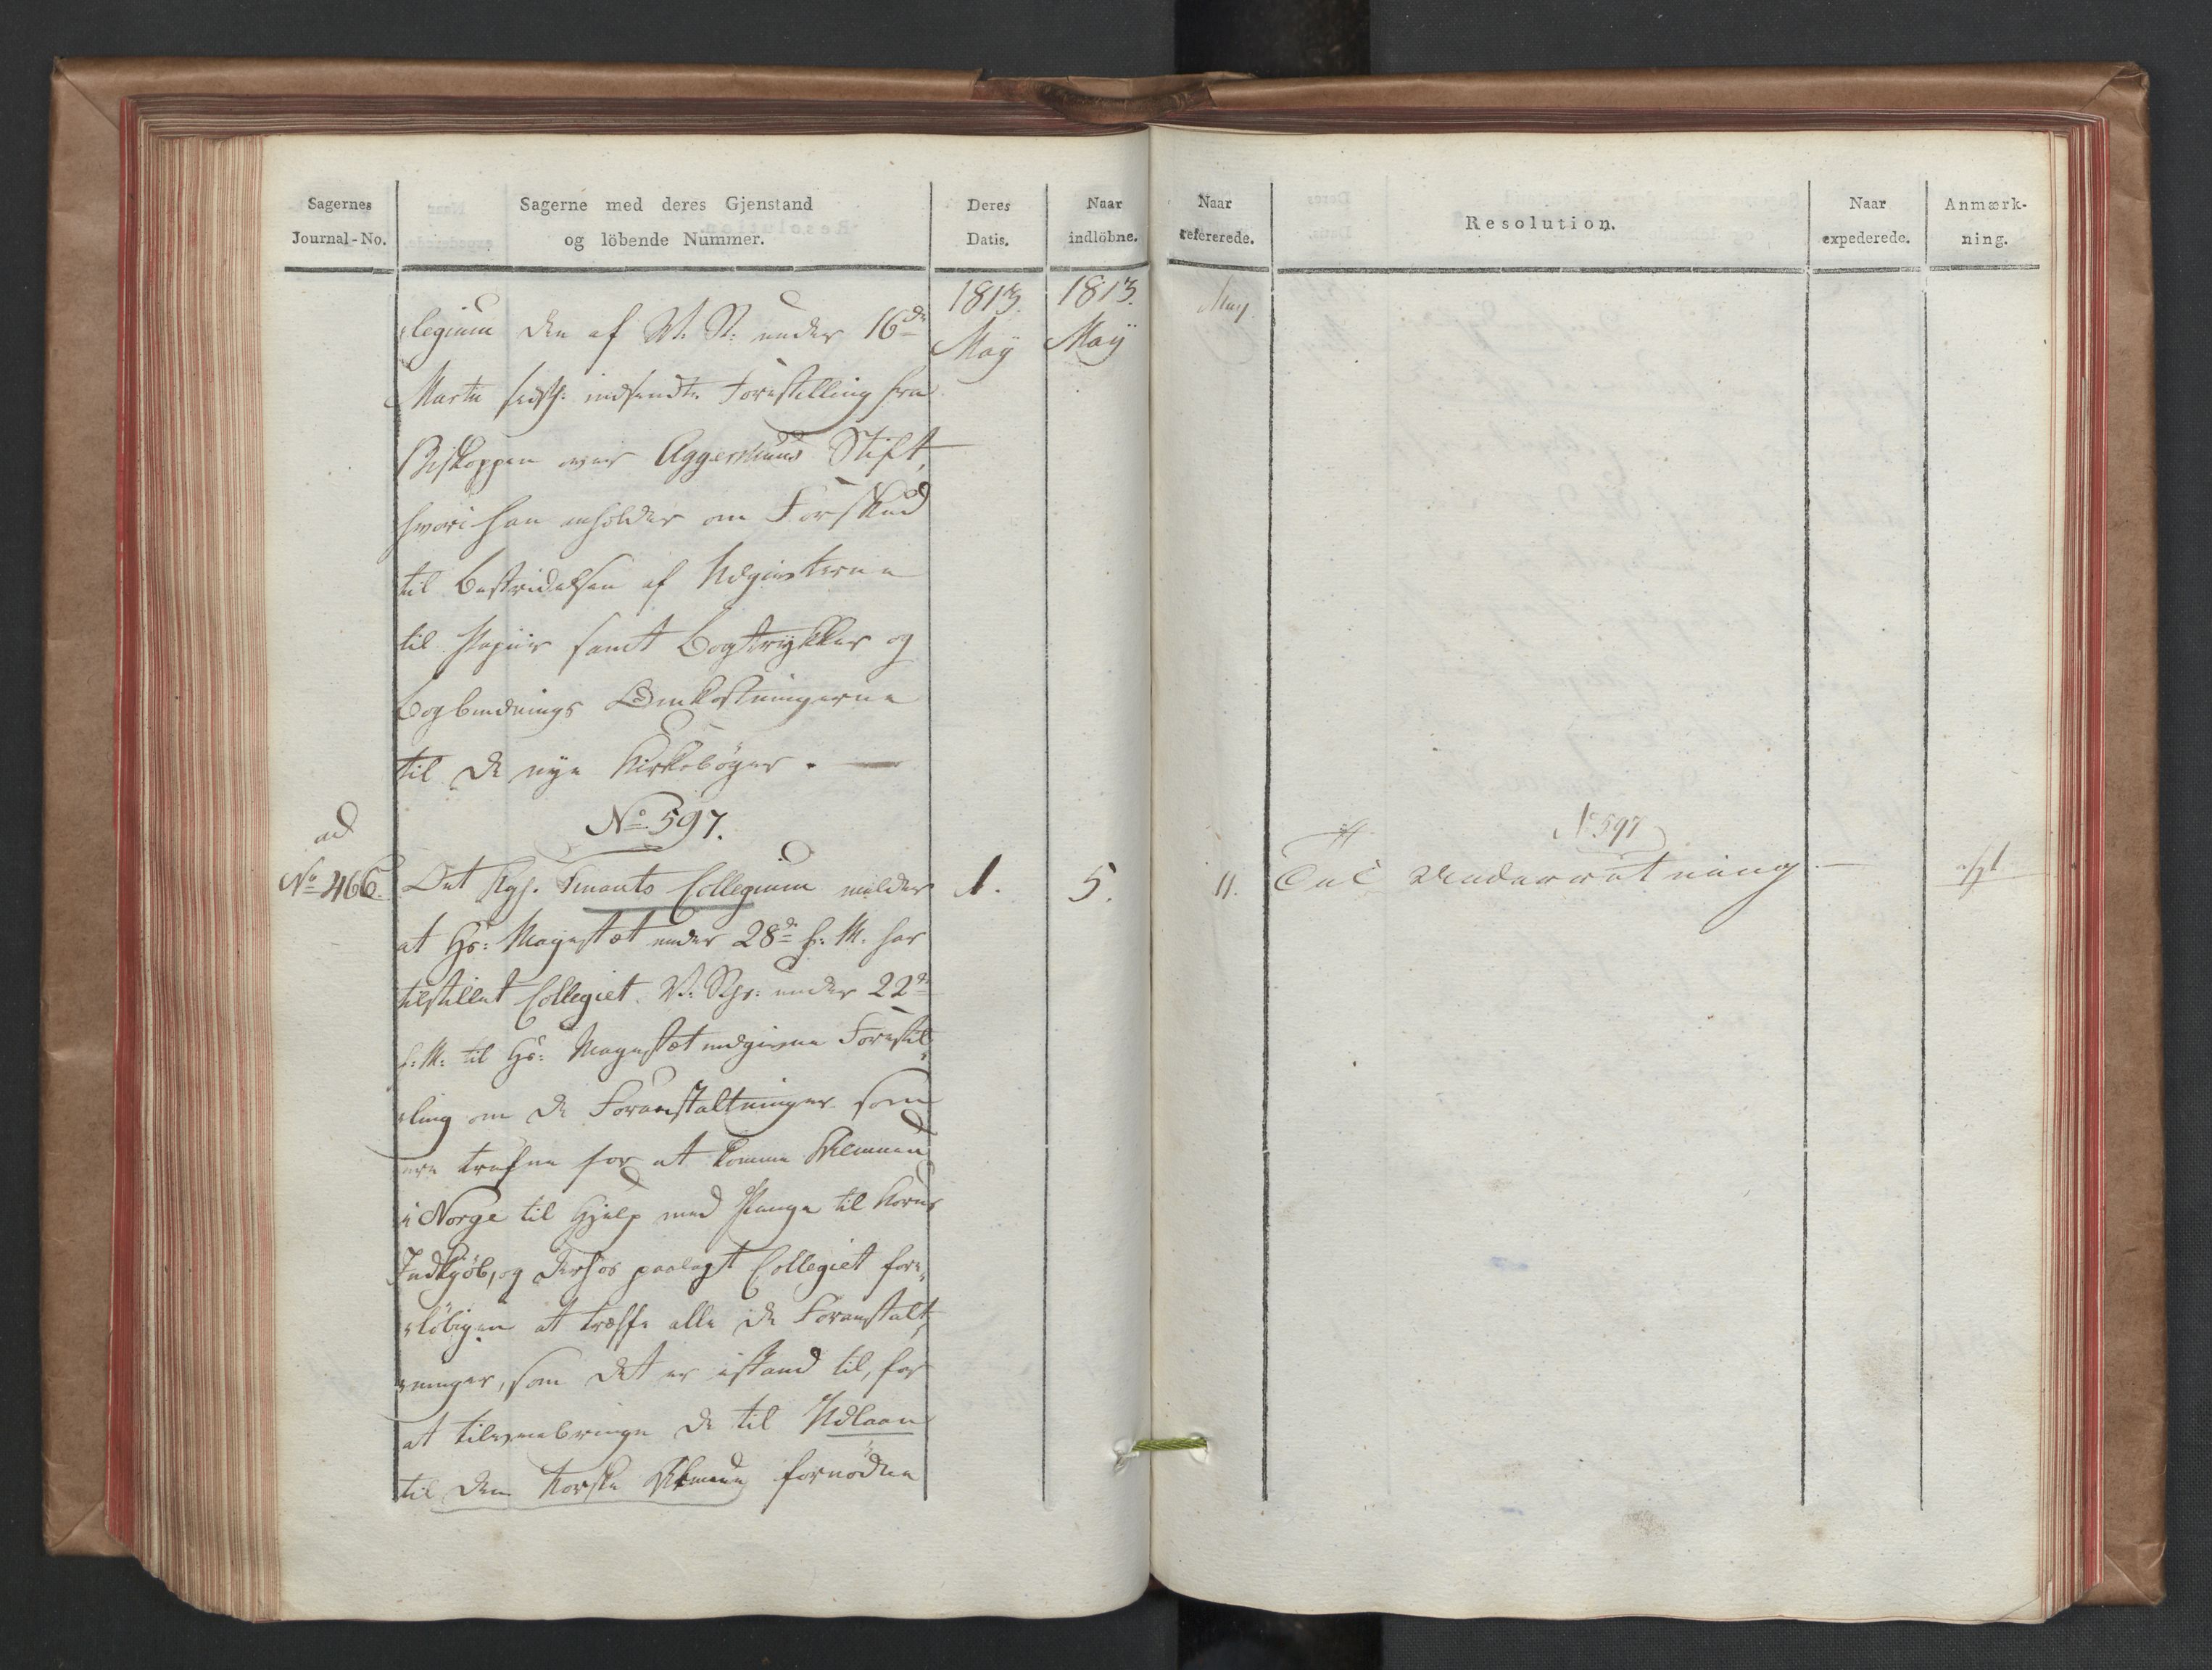 Sagernes
Journal-No.
Sagerne med deres Gjenstand
og löbende Nummer.
Deres
Datis.
Naar
indlöbne.
Naar
refererede.
Resolution.
Naar
expederede.
Anmærk-
ning.
1813.
May
1813.
May
May.
legium den af V. R. under 16de
Martii indsendte Forestilling fra
Biskoppen over Aggershuus Stift,
hvori han anholder om Forskud
til Bestridelsen af Udgivterne
til Papiir samt Bogtrykker og
Bogbindnings Omkostningerne
til de nye Kirkebøger. —
No. 597.
ad
No. 466.
Det Kgl. Finants Collegium melder
1.
5.
11.
No 597
Til Underretning
at Hs: Majestæt under 28de f: M. har
tilstillet Collegiet V: under 22de
f: M: til Hs: Majestæt indgivne Forestil-
ling om de Foranstaltninger som
ere trufne for at komme Almuen
i Norge til Hjelp med Penge til Korns
Indkjøb, og derhos paalagt Collegiet fore-
løbigen at træffe alle de Foranstalt-
ninger, som det er istand til, for
at tilveiebringe de til Udlaan
til den Norske Almue fornødne